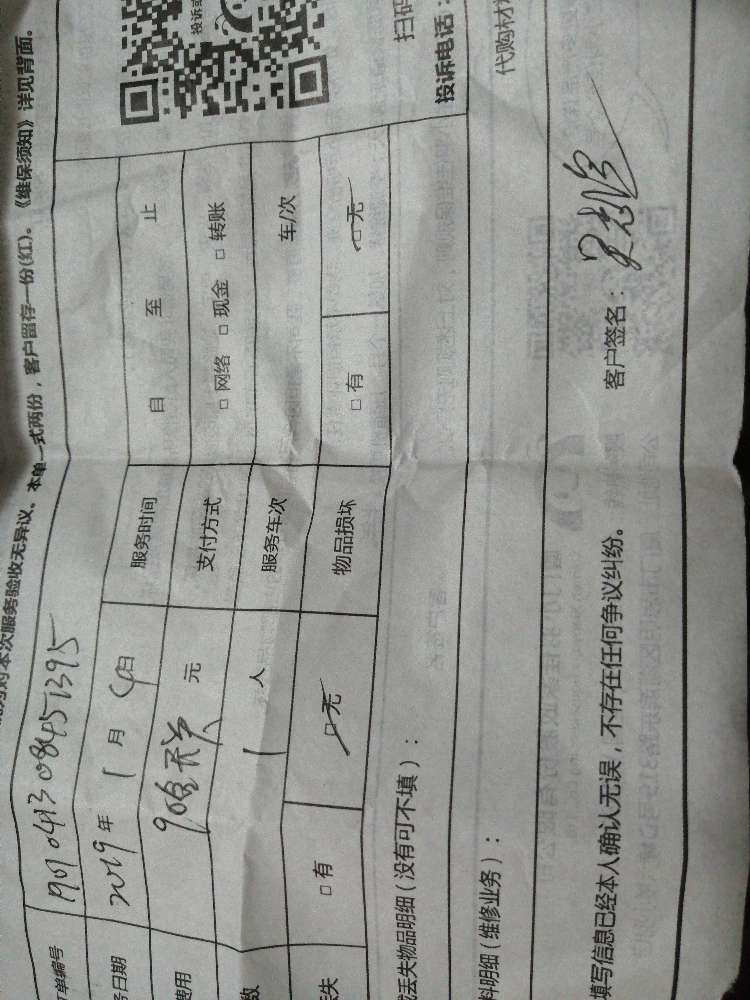 对本次服务验收无异议。本单一式两份，客户留存一份(红)。《维保须知》详见背面。
单编号 1901041308451395
务日期 2019年 1月 4日 服务时间 自 至 止
费用 元 支付方式 □ 网络 □ 现金 □ 转账
数 1 人 服务车次 车/次
丢失 □ 有 □ 无 物品损坏 □ 有 □ 无
投诉
扫码
投诉电话：
或丢失物品明细（没有可不填）：
代购材
料明细（维修业务）：
填写信息已经本人确认无误，不存在任何争议纠纷。 客户签名：